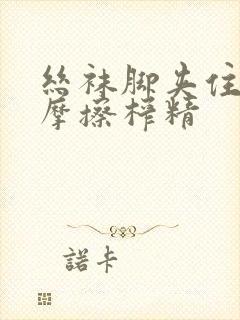 絲袜脚夹住
摩擦榨精
諾卡